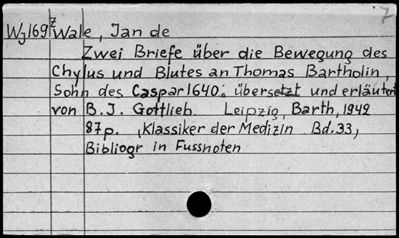 7
WZ 169 Wale, Jan de
Zwei Briefe über die Bewegung des
Chylus und Blutes an Thomas Bartholin,
Sohn des Caspar 1640. übersetzt und erläutert
von B. J. Gottlieb. Leipzig, Barth, 1942
87p. ,Klassiker der Medizin Bd. 33,
Bibliogr in Fussnoten